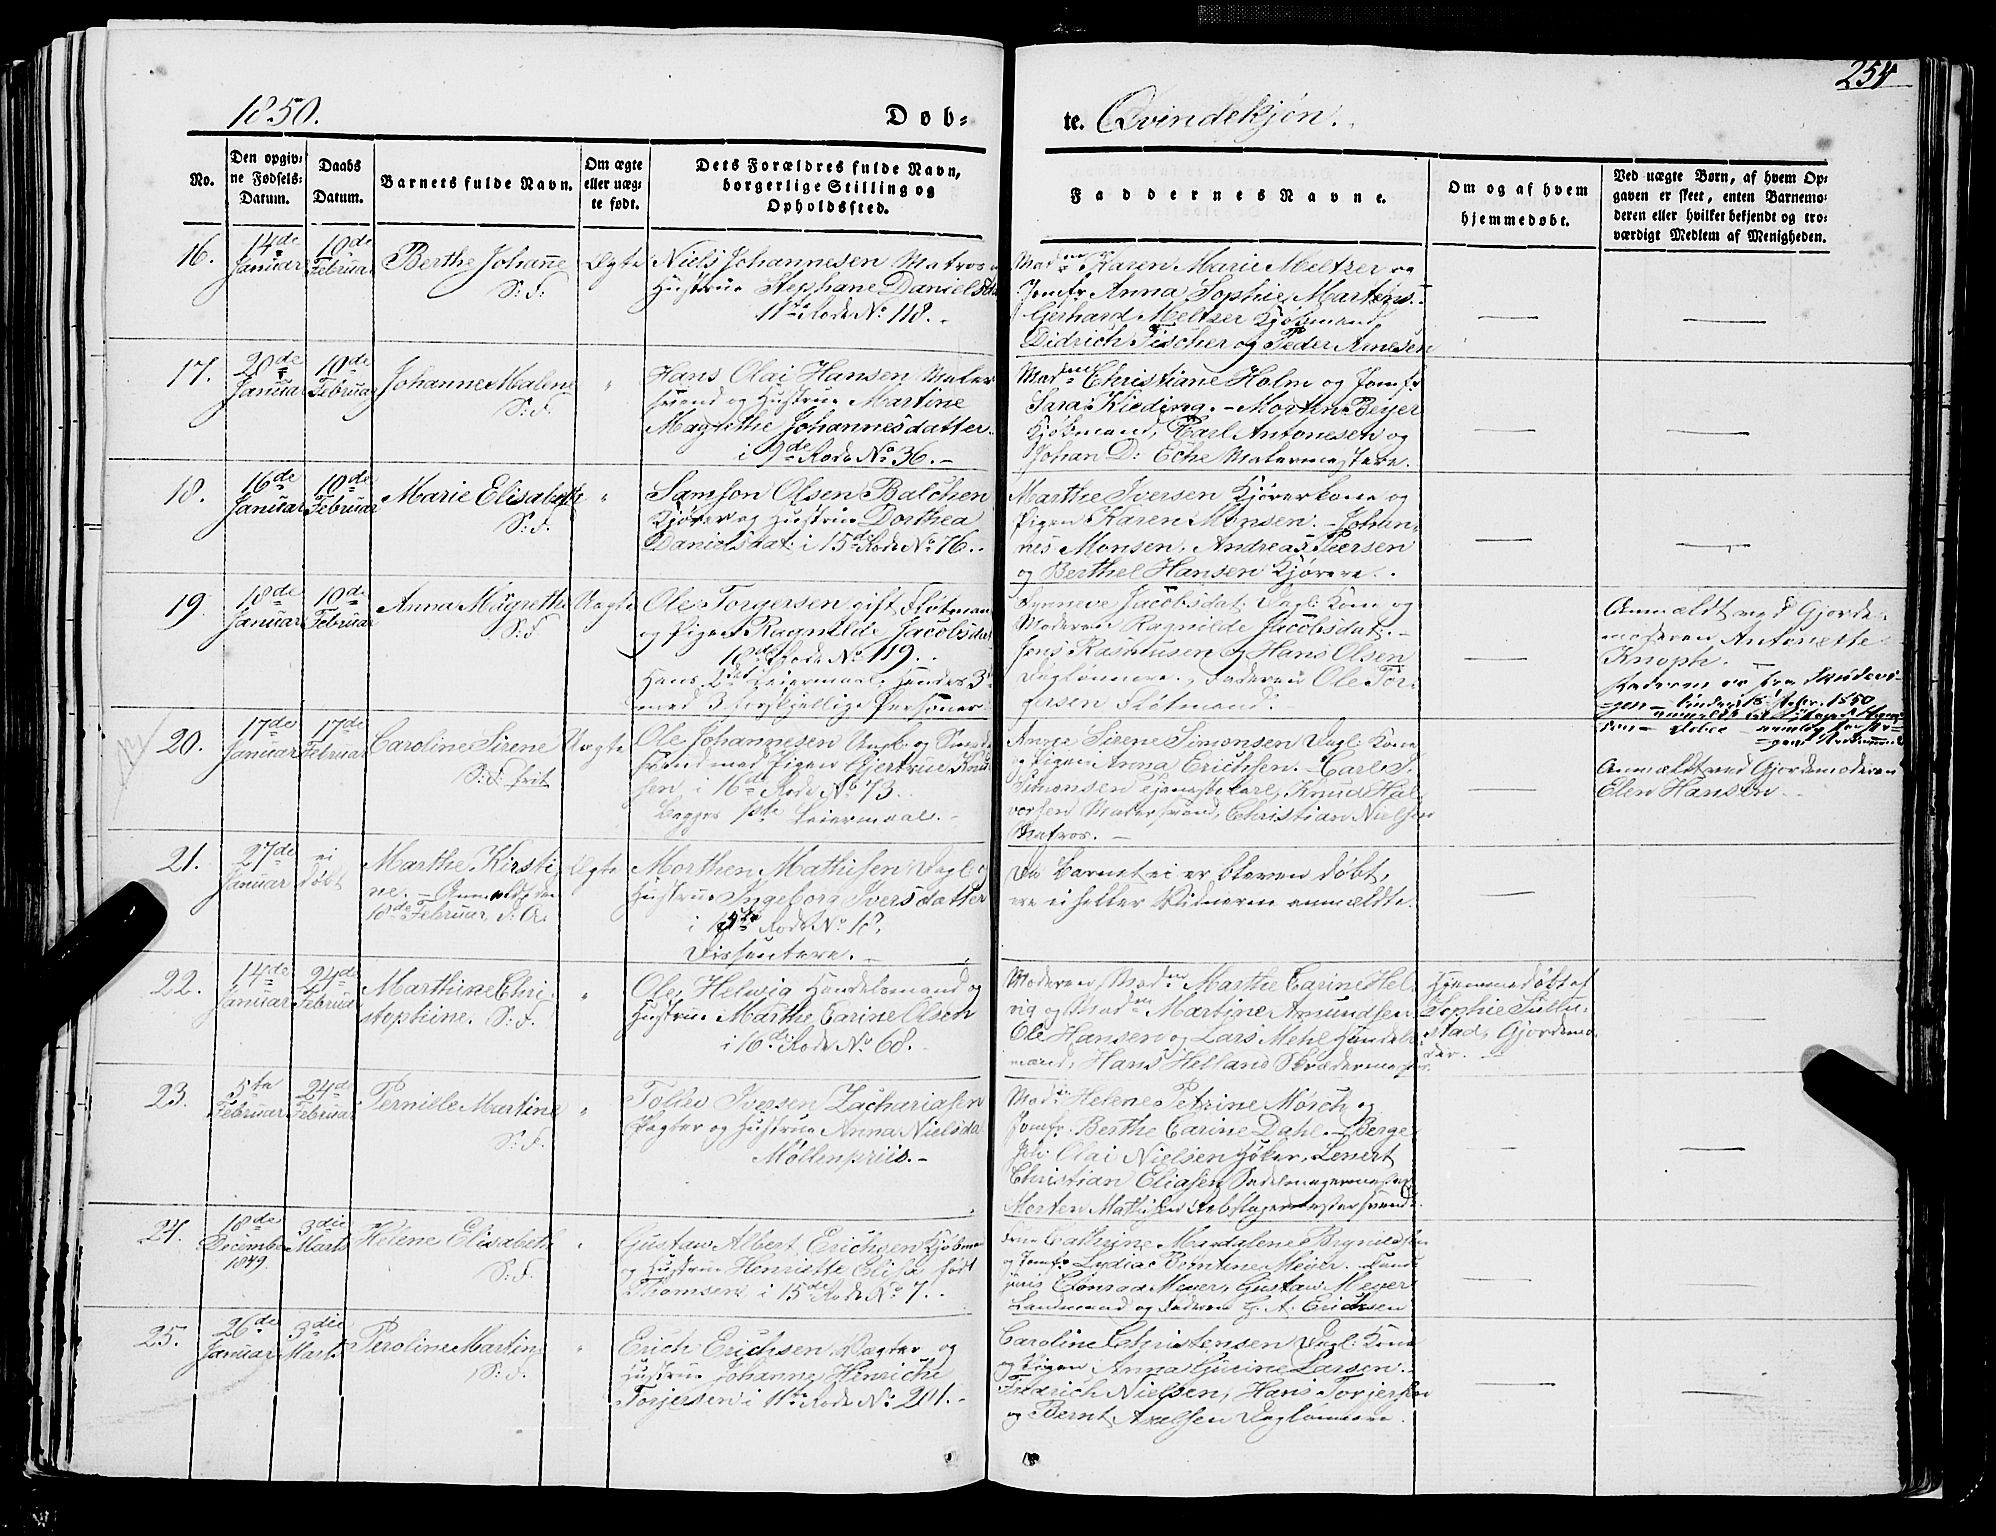 254
1850.
Døb-
te. Qvindekjøn.
No.
Den opgiv-
ne Fødsels-
Datum.
Daabs
Datum.
Barnets fulde Navn.
Om ægte
eller uæg-
te født.
Dets Forældres fulde Navn,
borgerlige Stilling og
Opholdssted.
Faddernes Navne.
Om og af hvem
hjemmedøbt.
Ved uægte Børn, af hvem Op-
gaven er skeet, enten Barnemo-
deren eller hvilket bekjendt og tro-
værdigt Medlem af Menigheden.
16.
14de
Januar
10de
Februar
Berthe Johanne
S: F:
Ægte
Niels Johannesen Matros
Hustrue Stephane Daniels
11te Rode No 118.
Madm Karen Marie Meltzer og
Jomfr Anna Sophie Martens.
Gerhard Meltzer Kjøbmand
Didrich Fischer og Peder Arnesen
17.
20de
Januar
10de
Februar
Johanne Malene
S: F.
"
Hans Olai Hansen Maler
svend og Hustrue Martine
Magrethe Johannesdatter
i 9de Rode No 36.
Madm Christiane Holm og Jomfr
Sara Kieding. - Morten Beyer
Kjøbmand, Carl Antonesen og
Johan D: Eche Malermestere.
18.
16de
Januar
10de
Februar
Marie Elisabeth
S: F.
"
Samson Olsen Balchen
Kjører og Hustrue Dorthea
Danielsdat: i 15de Rode No 76.
Marthe Iversen Kjørerkone og
Pigen Karen Monsen. - Johan-
nes Monsen, Andreas Peersen
og Berthel Hansen Kjørere.
19.
18de
Januar
10de
Februar
Anna Magrethe
S: F
Uægte
Ole Torgersen gift Fløtmand
og Pigen Ragnilde Jacobsdat
18de Rode No 119.
Hans 2det Leiermaal, Hendes 3de
med 3 forskjellige Personer
Synneve Jacobsdat: Dagl: Kone og
Moderen Ragnilde Jacobsdat.
Jens Rasmusen og Hans Olsen
Daglønnere, Faderen Ole Tor-
gersen Fløtmand.
Anmældt ved Gjorde-
moderen Antonette
Knoph.
20.
17de
Januar
17de
Februar
Caroline Sirene
S: F. frit
Uægte
Ole Johannesen Ungk: og Smede
svend med Pigen Gjertrue Knud-
sen, i 16de Rode No 73.
Begges 1ste Leiermaal.
Anne Sirene Simonsen Dagl: Kone
og Pigen Anna Erichsen. - Carl S.
Simonsen Tjenestekarl, Knud Hal-
vorsen Malersvend, Christian Nielsen
Matros.
Anmældt ved Gjordemoderen
Elen Hansen.
21.
27de
Januar
ei
døbt
Marthe Kirsti-
ne. - Anmeldt den
18de Februar d. A.
Ægte
Morthen Mathisen Dagl: og
Hustrue Ingeborg Iversdatter
Rode No 18,
Dissentere.
Da Barnet ei er bleven døbt,
ere ei heller Vidnerne anmældte.
22.
14de
Januar
24de
Februar
Marthine Chri-
stophine. S: F.
"
Ole Helwig Handelsmand og
Hustrue Marthe Carine Olsen
i 16de Rode No 68.
Moderen, Madm Marthe Carine Hel-
vig og Madm Martine Amundsen
Ole Hansen og Lars Mehl Handels-
mænd, Hans Helland Skrædermester.
Hjemmedøbt af
Sophie Sultu-
stad, Gjordemo-
der.
23.
5te
Februar
24de
Februar
Pernille Martine
S: F.
"
Tollev Iversen Zachariasen
Vægter og Hustrue Anna Nielsda
Møllenpriis.
Madm Helene Petrine Mørch og
Jomfr. Berthe Carine Dahl. - Berge
Olai Nielsen Høker, Lenert
Christian Eliasen Sadelmagermester
Morten Mathisen
24.
18de
December
1849.
3die
Marts
Helene Elisabeth
S: F.
"
Gustav Albert Erichsen Kjøbm
og Hustrue Henriette Elise født
Thomsen i 15de Rode No 7.
Fru Cathrine Magdalene Brynildsen
og Jomfr Lydia Berntine Meyer.
Conrad Meyer, Gustav Meyer
Landmand og Faderen G. A. Erichsen
25.
26de
Januar
3die
Marts
Peroline Martine
S: F.
"
Erich Erichsen Vægter og
Hustrue Johanne Henriche
Torjersen i 11te Rode No 201.
Caroline Christensen Dagl: Kone
og Pigen Anna Gurine Larsen.
Fredrich Nielsen, Hans Torjersen
og Bernt Axelsen Daglønnere.